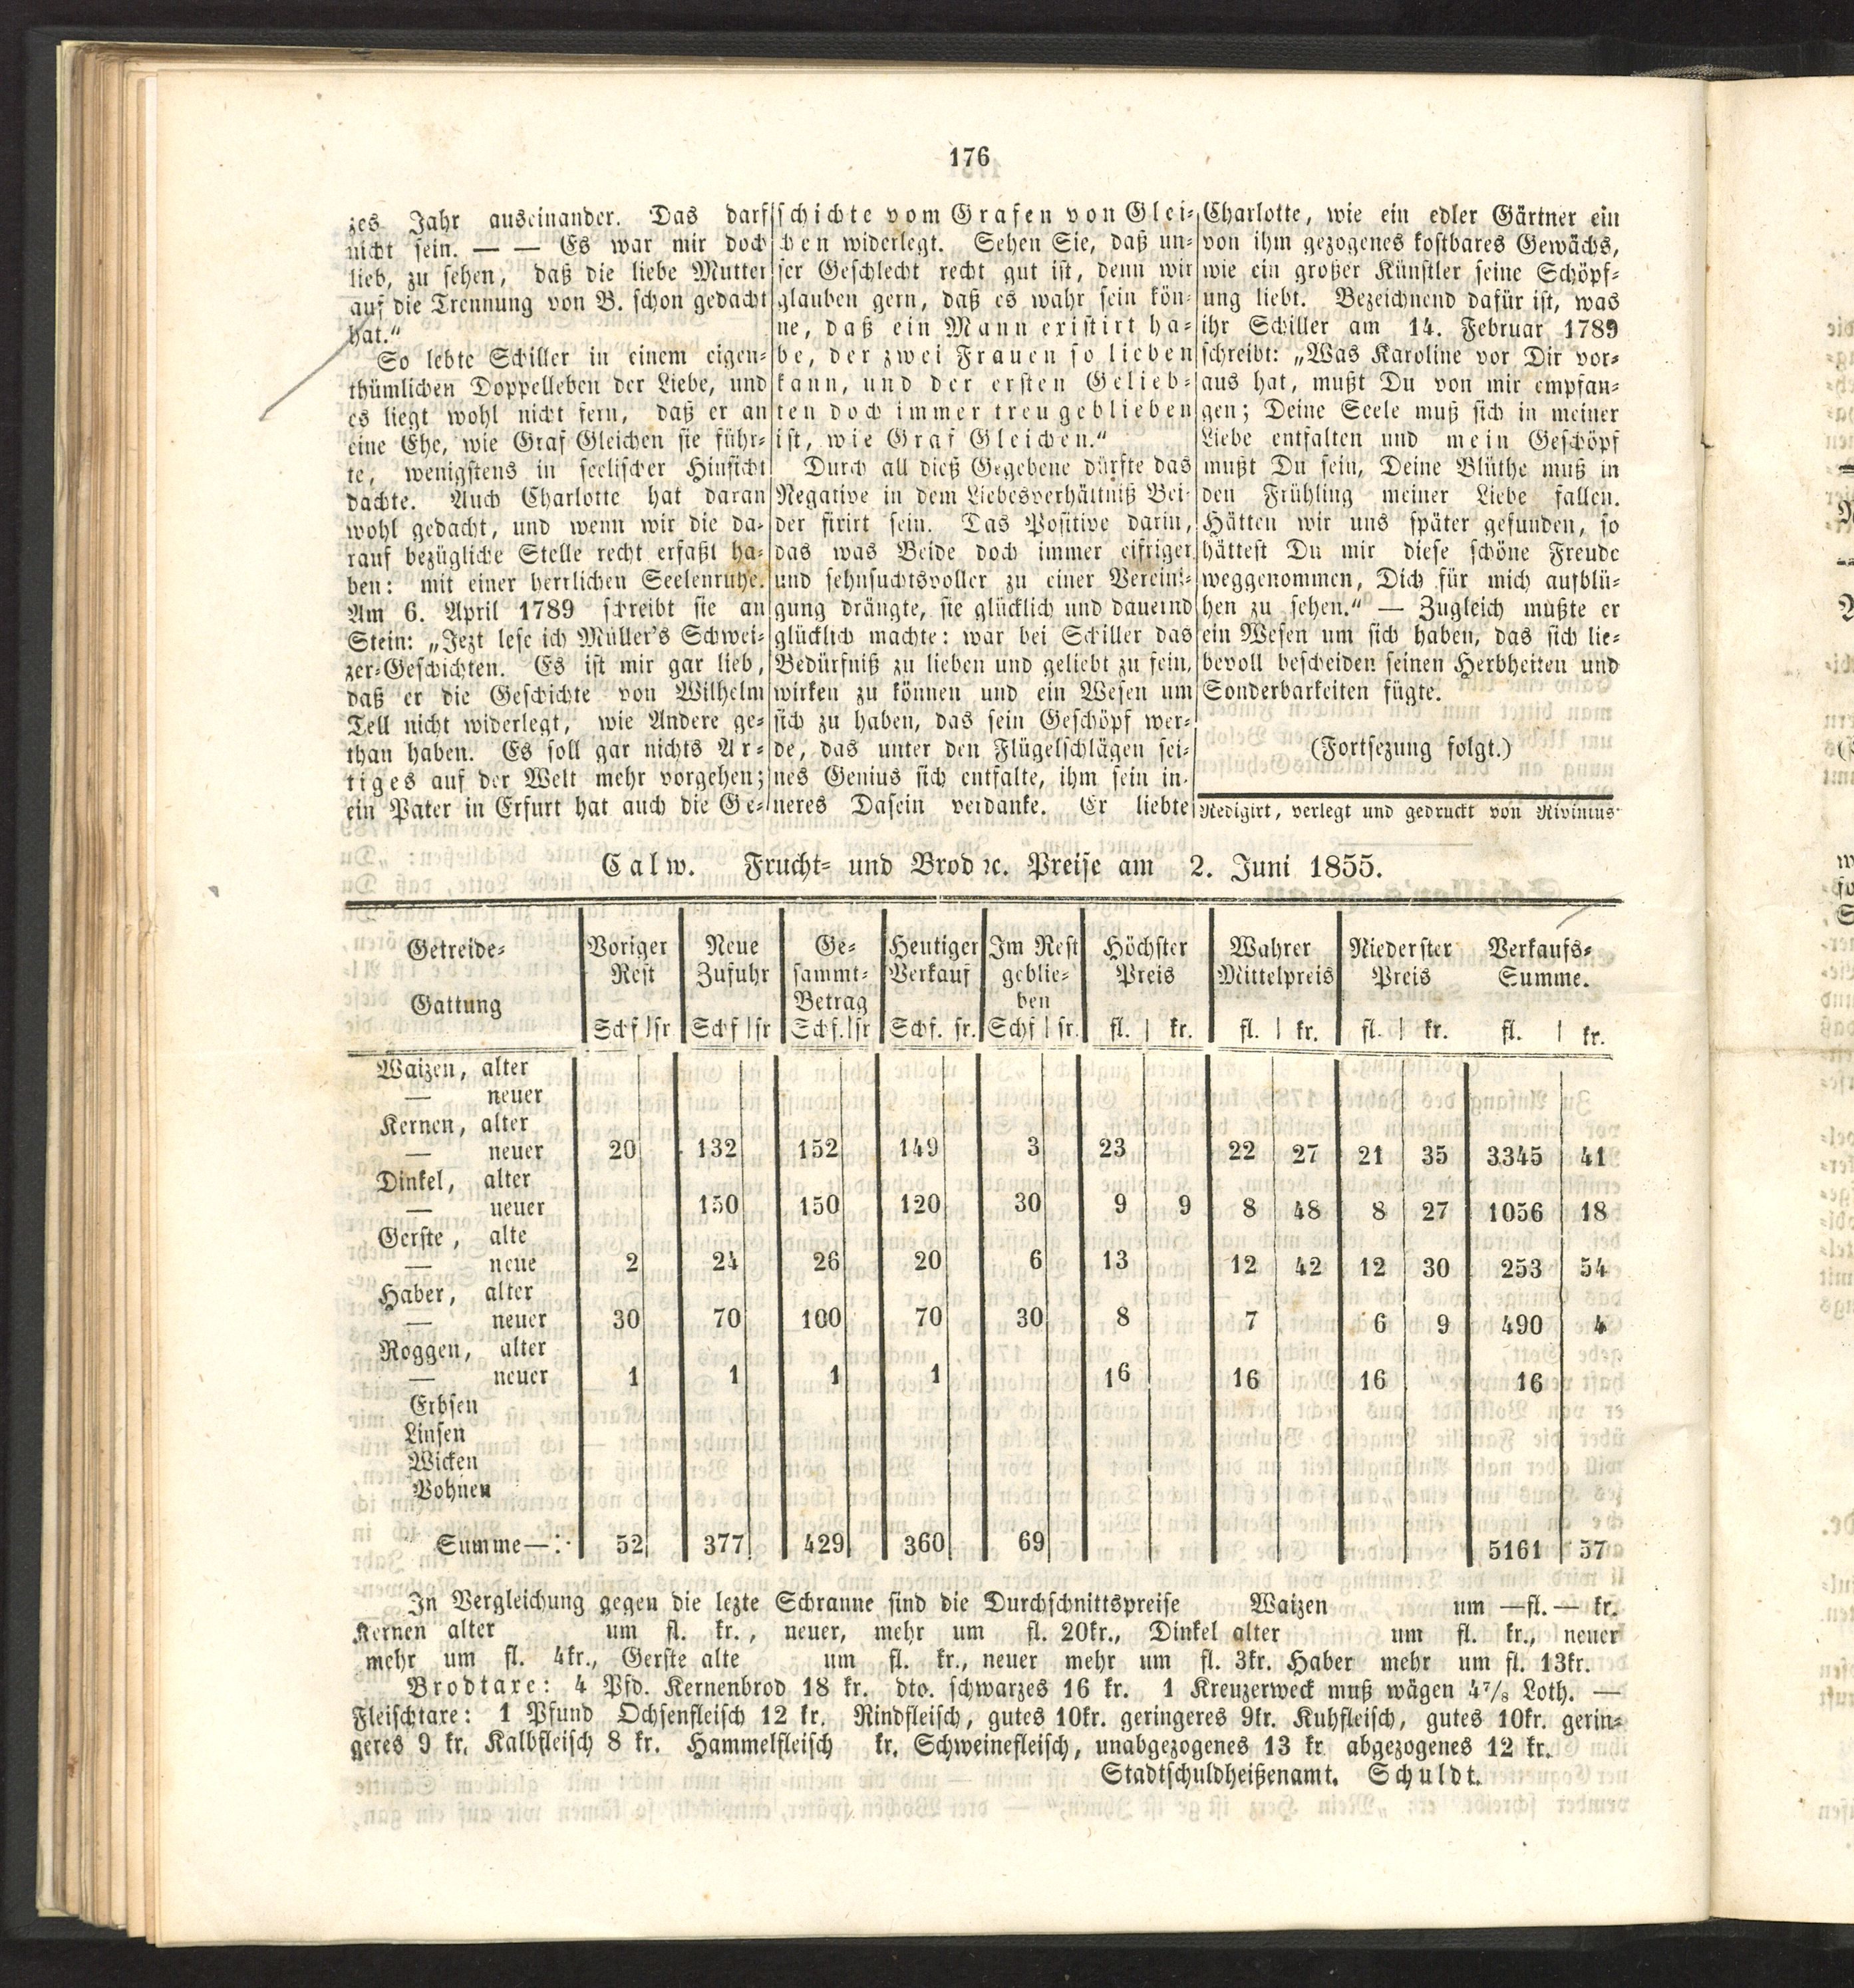 176
zes Jahr auseinander. Das darf
nicht sein. — — Es war mir doch
lieb, zu sehen, daß die liebe Mutter
auf die Trennung von B. schon gedacht
hat.“
So lebte Schiller in einem eigen-
thümlichen Doppelleben der Liebe, und
es liegt wohl nicht fern, daß er an
eine Ehe, wie Graf Gleichen sie führ-
te, wenigstens in seelischer Hinsicht
dachte. Auch Charlotte hat daran
wohl gedacht, und wenn wir die da-
rauf bezügliche Stelle recht erfaßt ha-
ben: mit einer herrlichen Seelenruhe.
Am 6. April 1789 schreibt sie an
Stein: „Jezt lese ich Müller's Schwei-
zer-Geschichten. Es ist mir gar lieb,
daß er die Geschichte von Wilhelm
Tell nicht widerlegt, wie Andere ge-
than haben. Es soll gar nichts Ar-
tiges auf der Welt mehr vorgehen;
ein Pater in Erfurt hat auch die Ge-
schichte vom Grafen von Glei-
chen widerlegt. Sehen Sie, daß un-
ser Geschlecht recht gut ist, denn wir
glauben gern, daß es wahr sein kön-
ne, daß ein Mann existirt ha-
be, der zwei Frauen so lieben
kann, und der ersten Gelieb-
ten doch immer treu geblieben
ist, wie Graf Gleichen.“
Durch all dieß Gegebene dürfte das
Negative in dem Liebesverhältniß Bei-
der fixirt sein. Das Positive darin,
das was Beide doch immer eifriger
und sehnsuchtsvoller zu einer Vereini-
gung drängte, sie glücklich und dauernd
glücklich machte: war bei Schiller das
Bedürfniß zu lieben und geliebt zu sein,
wirken zu können und ein Wesen um
sich zu haben, das sein Geschöpf wer-
de, das unter den Flügelschlägen sei-
nes Genius sich entfalte, ihm sein in-
neres Dasein verdanke. Er liebte
Charlotte, wie ein edler Gärtner ein
von ihm gezogenes kostbares Gewächs,
wie ein großer Künstler seine Schöpf-
ung liebt. Bezeichnend dafür ist, was
ihr Schiller am 14. Februar 1789
schreibt: „Was Karoline vor Dir vor-
aus hat, mußt Du von mir empfan-
gen; Deine Seele muß sich in meiner
Liebe entfalten und mein Geschöpf
mußt Du sein, Deine Blüthe muß in
den Frühling meiner Liebe fallen.
Hätten wir uns später gefunden, so
hättest Du mir diese schöne Freude
weggenommen, Dich für mich aufblü-
hen zu sehen.“ — Zugleich mußte er
ein Wesen um sich haben, das sich lie-
bevoll bescheiden seinen Herbheiten und
Sonderbarkeiten fügte.
(Fortsezung folgt.)
Redigirt, verlegt und gedruckt von Rivinius.
Calw. Frucht- und Brod ꝛc. Preise am 2. Juni 1855.
Getreide- Voriger Neue Ge- Heutiger Im Rest Höchster Wahrer Niederster Verkaufs-
Rest Zufuhr sammt- Verkauf geblie- Preis Mittelpreis Preis Summe.
Gattung Betrag ben
Schf sr Schf sr Schf. sr Schf. sr. Schf sr. fl. kr. fl. kr. fl. kr. fl. kr.
Waizen, alter
— neuer
Kernen, alter
— neuer 20 132 152 149 3 23 22 27 21 35 3345 41
Dinkel, alter
— neuer 150 150 120 30 9 9 8 48 8 27 1056 18
Gerste, alte
— neue 2 24 26 20 6 13 12 42 12 30 253 54
Haber, alter
— neuer 30 70 100 70 30 8 7 6 9 490 4
Roggen, alter
— neuer 1 1 1 1 16 16 16 16
Erbsen
Linsen
Wicken
Bohnen
Summe—: 52 377 429 360 69 5161 57
In Vergleichung gegen die lezte Schranne sind die Durchschnittspreise Waizen um —fl. — kr.
Kernen alter um fl. kr., neuer, mehr um fl. 20kr., Dinkel alter um fl. kr., neuer
mehr um fl. 4kr., Gerste alte um fl. kr., neuer mehr um fl. 3kr. Haber mehr um fl. 13kr.
Brodtaxe: 4 Pfd. Kernenbrod 18 kr. dto. schwarzes 16 kr. 1 Kreuzerweck muß wägen 4⁷/₈ Loth. —
Fleischtaxe: 1 Pfund Ochsenfleisch 12 kr. Rindfleisch, gutes 10kr. geringeres 9kr. Kuhfleisch, gutes 10kr. gerin-
geres 9 kr. Kalbfleisch 8 kr. Hammelfleisch kr. Schweinefleisch, unabgezogenes 13 kr abgezogenes 12 kr.
Stadtschuldheißenamt. Schuldt.